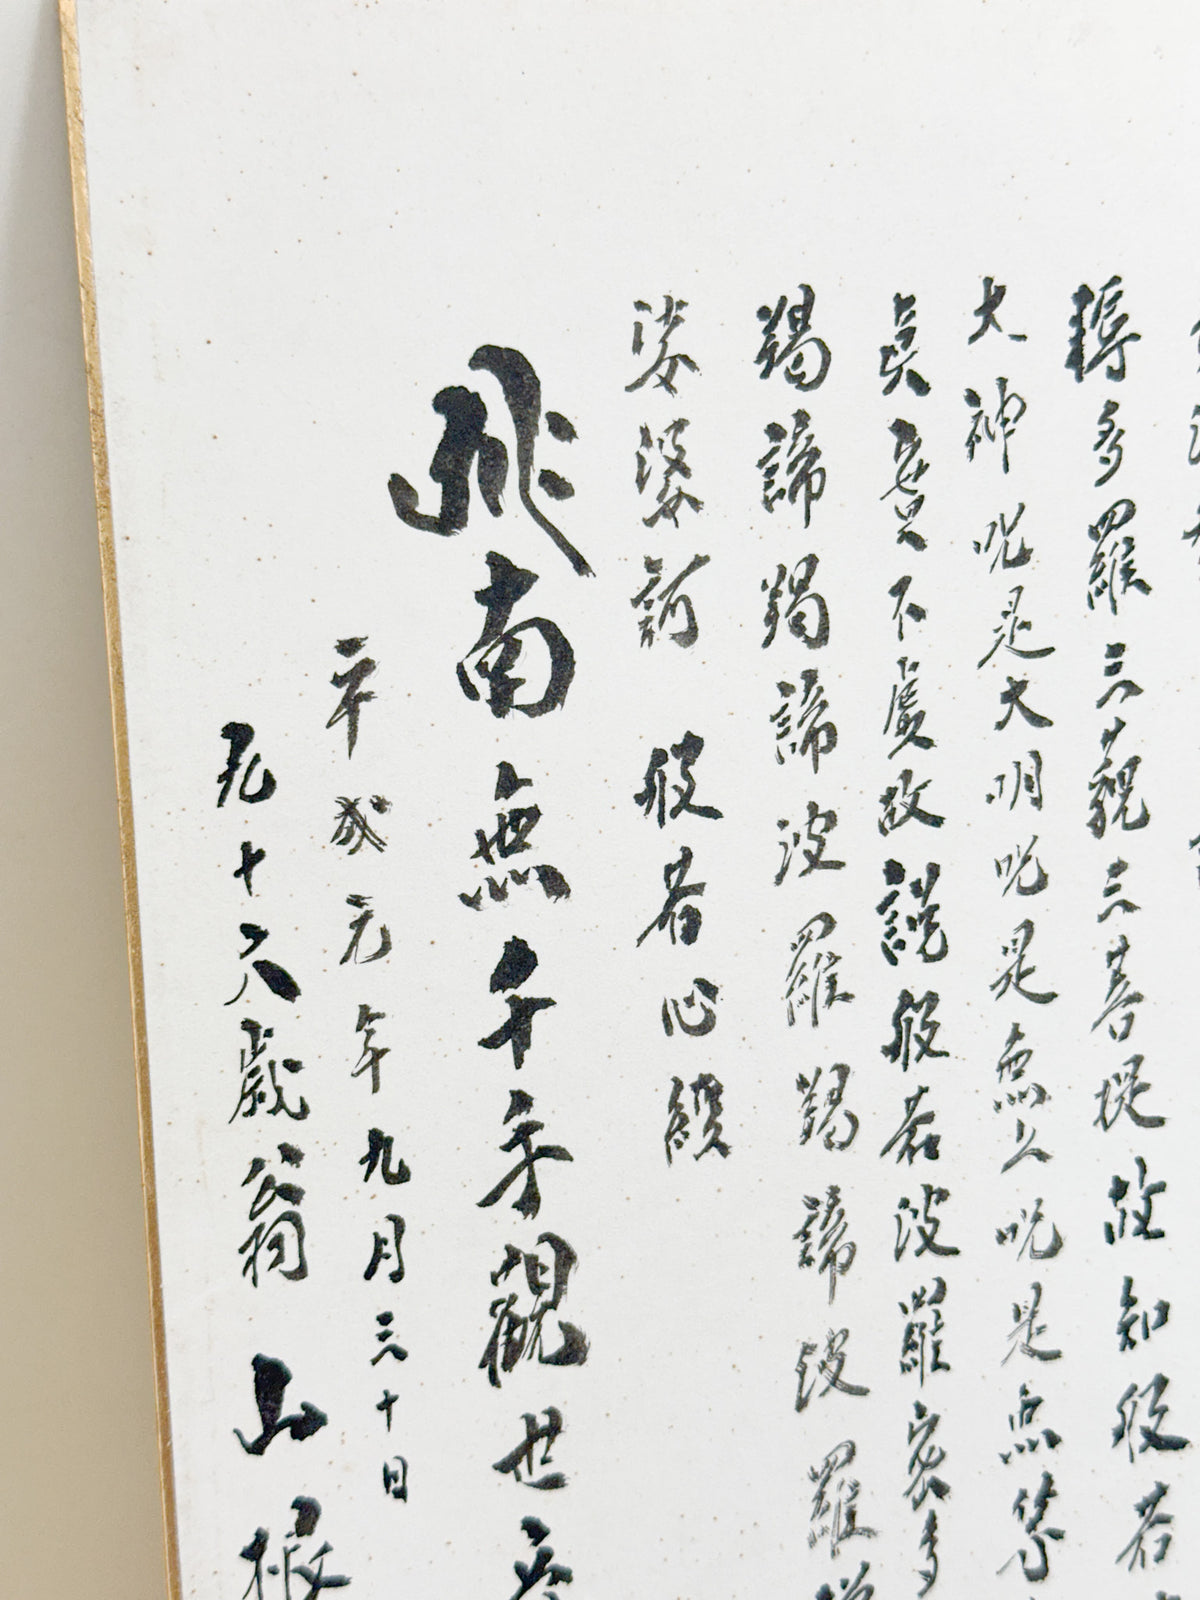 耨多羅三藐三菩提故知般若
大神呪是大明呪是無上呪是無等
真實不虛故說般若波羅蜜多
羯諦羯諦波羅羯諦波羅
娑婆訶 般若心經
南無千手觀世音
平成元年九月三十日
九十六歲翁 山根